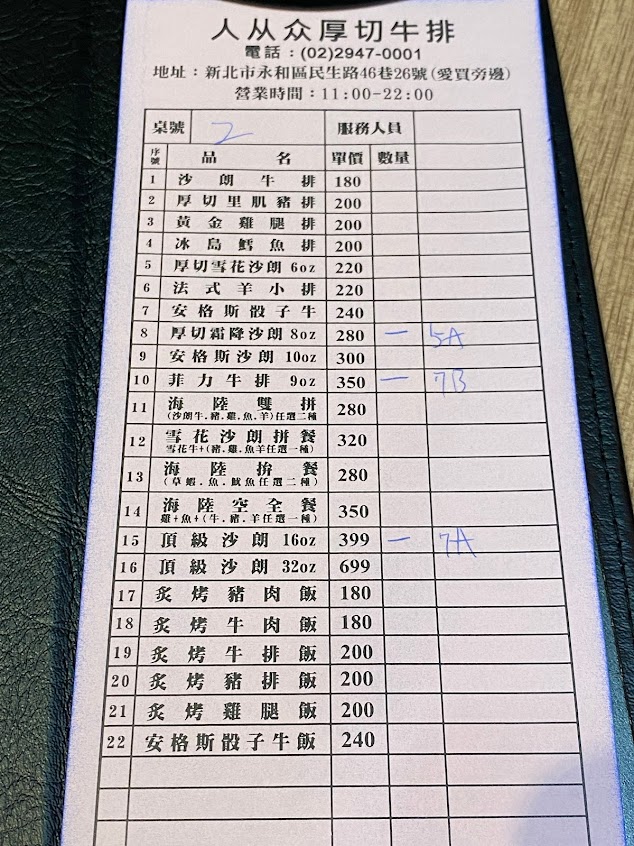 人从众厚切牛排
電話：(02)2947-0001
地址：新北市永和區民生路46巷26號(愛買旁邊)
營業時間：11:00-22:00
桌號 2 服務人員
序號 品名 單價 數量
1 沙朗牛排 180
2 厚切里肌豬排 200
3 黃金雞腿排 200
4 冰島鱈魚排 200
5 厚切雪花沙朗 6oz 220
6 法式羊小排 220
7 安格斯骰子牛 240
8 厚切霜降沙朗 8oz 280 一 5A
9 安格斯沙朗 10oz 300
10 菲力牛排 9oz 350 一 7B
11 海陸雙拼 280
(沙朗牛.豬.雞.魚.羊)任選二種
12 雪花沙朗拼餐 320
雪花牛+(豬.雞.魚羊任選一種)
13 海陸拚餐 280
(草蝦.魚.魷魚任選二種)
14 海陸空全餐 350
雞+魚+(牛.豬.羊任選一種)
15 頂級沙朗 16oz 399 一 7A
16 頂級沙朗 32oz 699
17 炙烤豬肉飯 180
18 炙烤牛肉飯 180
19 炙烤牛排飯 200
20 炙烤豬排飯 200
21 炙烤雞腿飯 200
22 安格斯骰子牛飯 240